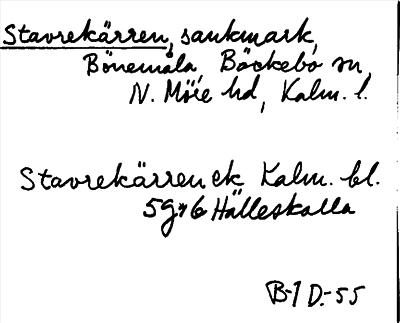 Stavrekärren, sankmark,
Bönemåla, Böckebo sn,
N. Möre hd, Kalm. l.
Stavrekärren ek Kalm. bl.
5g 6 Hälleskalla
B-1 D.-55